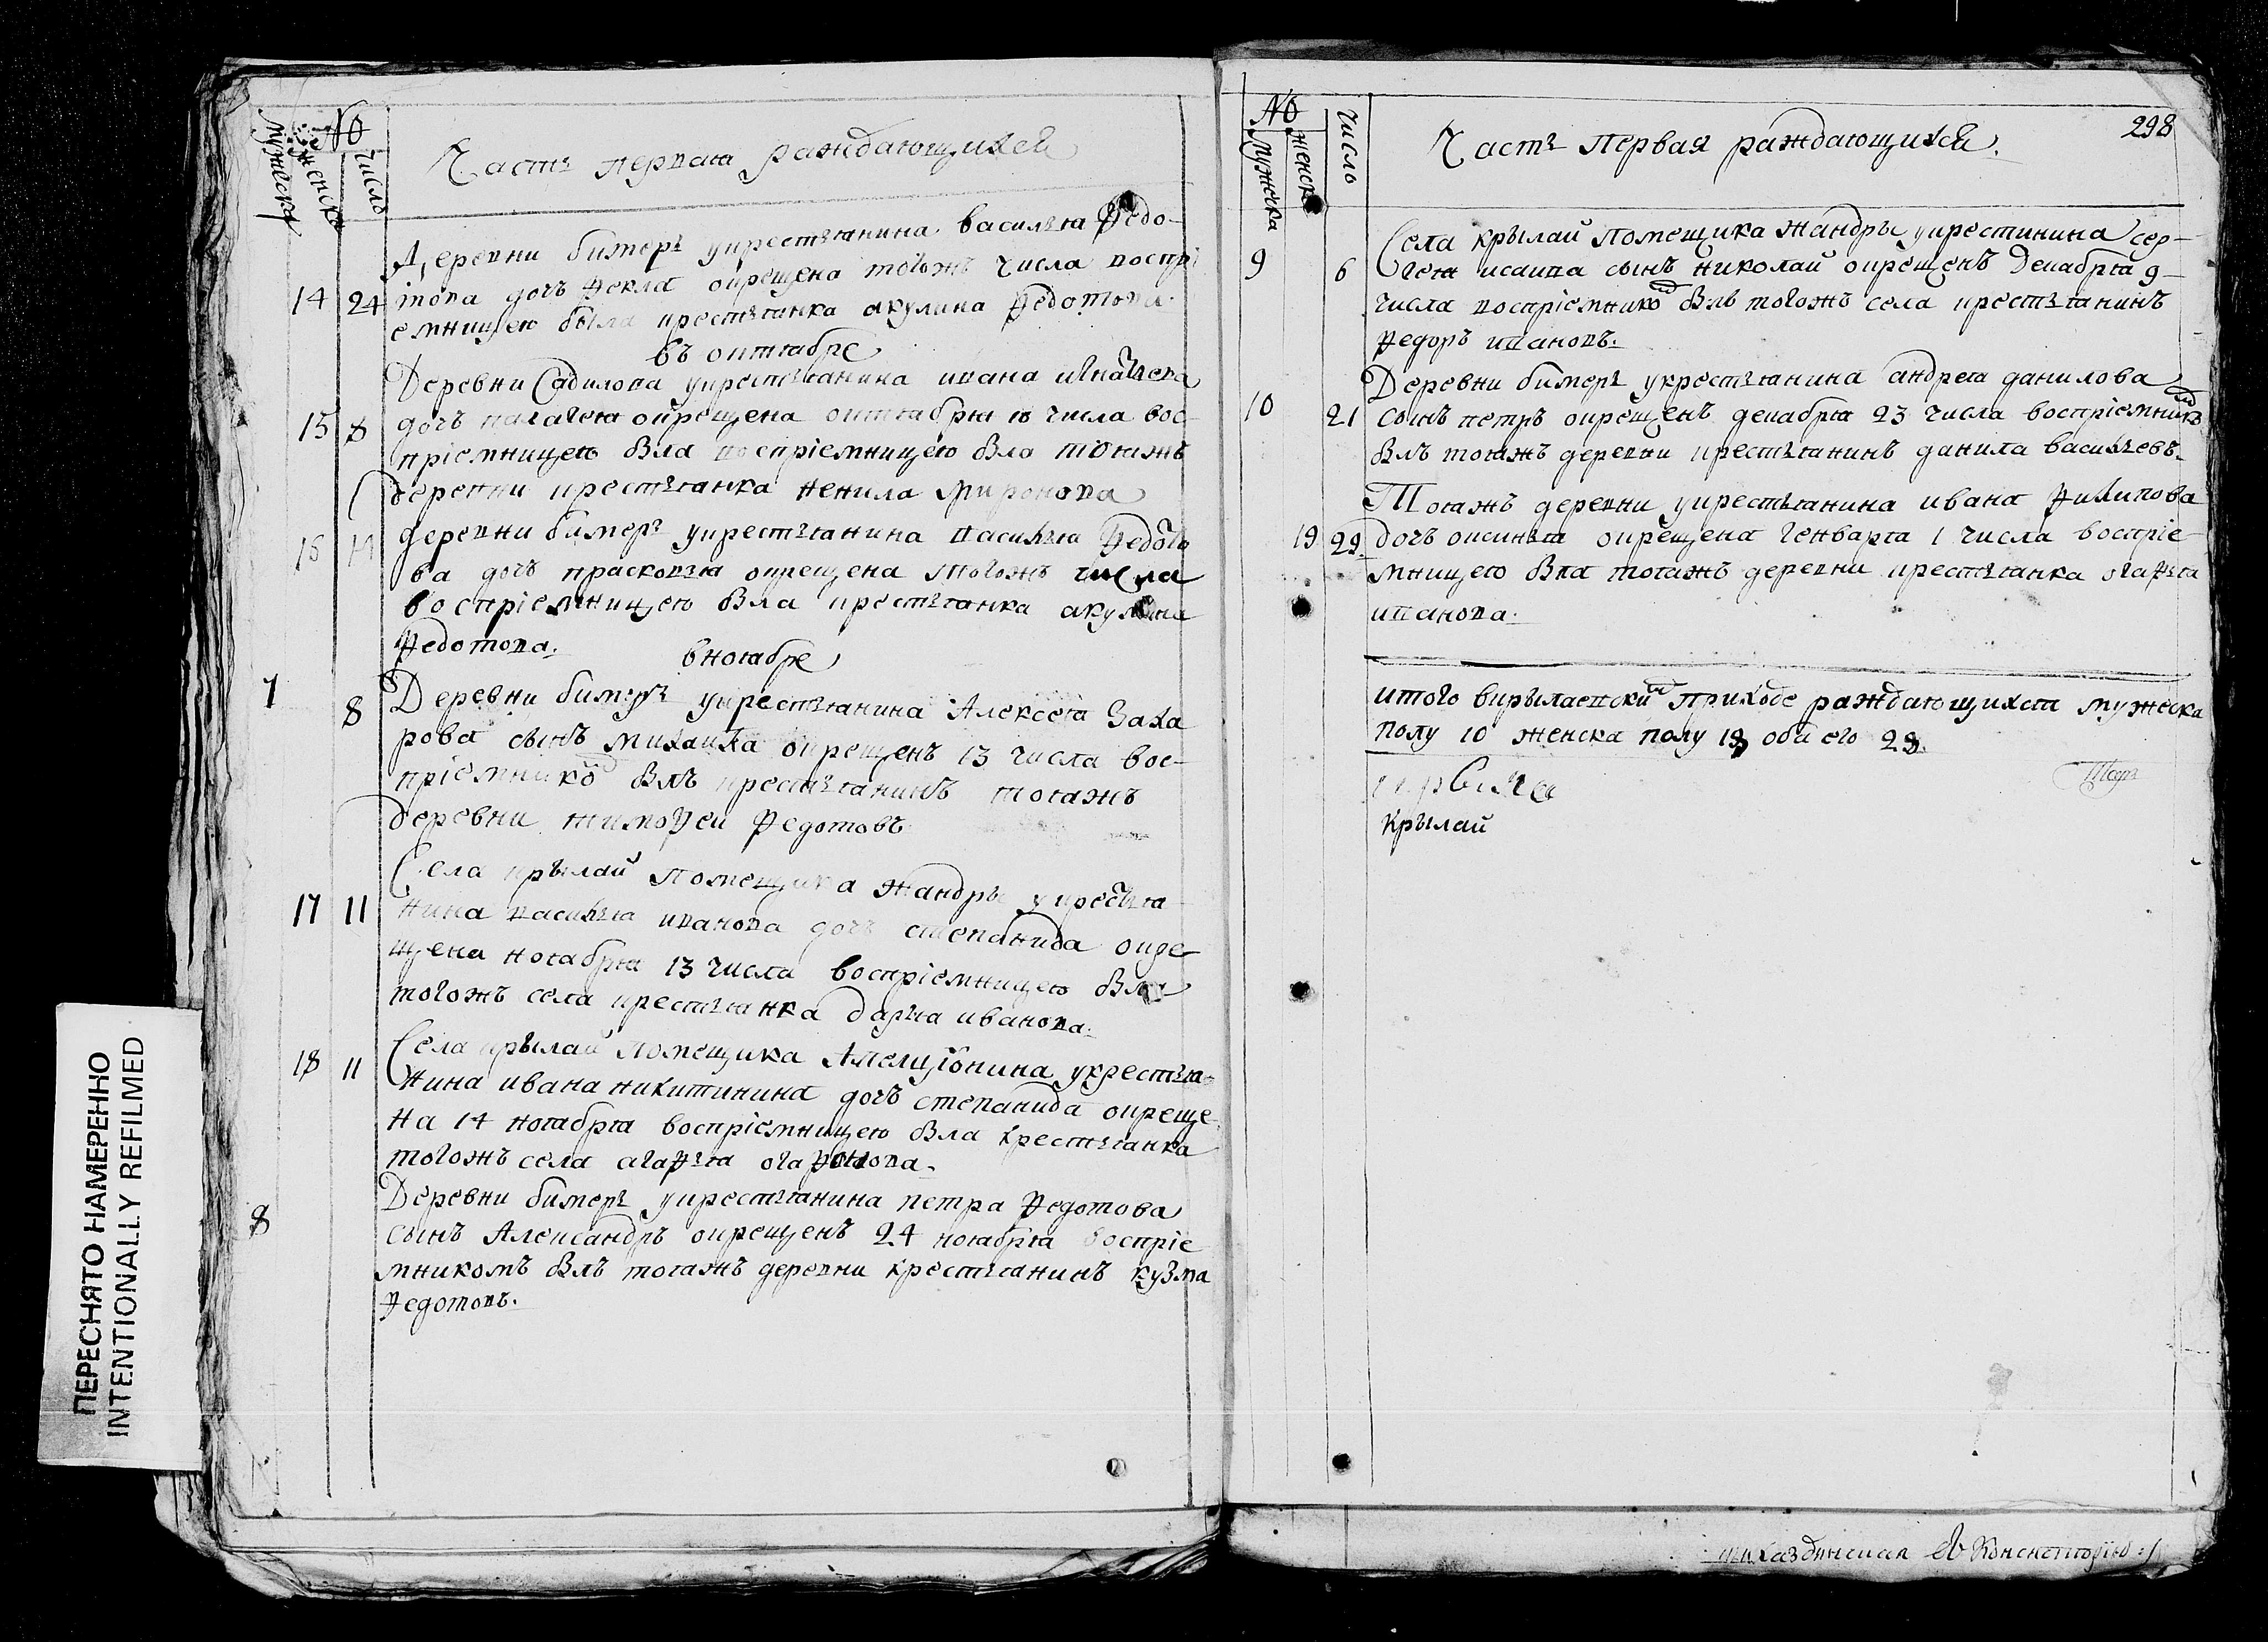 №
мужеска
женска
число
Часть первая раждающихся
Деревни бимерь укрестьянина василья Федо-
14 24 това дочь Фекла окрещена тогожъ числа воспрі
емницею была крестьянка акулина Федотова.
въ октябре
Деревни Садилова укрестьянина ивана игнатьева
15 8 дочь палагея окрещена октября 10 числа вос-
пріемницею бла воспріемницею бла тояжъ
деревни крестьянка ненила миронова
16 деревни бимерь укрестьянина василья Федото
ва дочь прасковья окрещена тогожъ числа
воспріемницею бла крестьянка акулина
Федотова.
в ноябре
7 8 Деревни бимерь укрестьянина Алексея Заха
рова сынъ михаила окрещенъ 13 числа вос-
пріемникомъ блъ крестьянинъ тояжъ
деревни тимофеи Федотовъ
Села крылай помещика жандры укрестья
17 11 нина василья иванова дочь степанида окре
щена ноября 13 числа воспріемницею бла
тогожъ села крестьянка дарья иванова.
18 11 Села крылай помещика Апелиціонина укрестья-
нина ивана никитинина дочь степанида окреще-
на 14 ноября воспріемницею бла крестьянка
тогожъ села агафья
8 Деревни бимерь укрестьянина петра Федотова
сынъ Александръ окрещенъ 24 ноября воспріе
мникомъ блъ тояжъ деревни крестьянинъ кузма
Федотовъ.
298
№
мужеска
женска
число
Часть Первая раждающихся.
Села крылай помещика жандры укрестинина сер-
9 6 гея исаива сынъ николай окрещенъ декабря 9-
числа воспріемникомъ блъ тогожъ села крестьянинъ
Федоръ ивановъ.
Деревни бимерь укрестьянина андрея данилова
10 21 сынъ петръ окрещенъ декабря 23 числа воспріемникомъ
блъ тояжъ деревни крестьянинъ данила васильевъ.
Тояжъ деревни укрестьянина ивана Филипова
19 29 дочь оксинья окрещена генваря 1 числа воспріе-
мницею бла тояжъ деревни крестьянка огафья
иванова.
итого вкрылаевскимъ приходе раждающихся мужеска
полу 10 женска полу 19 обаего 29.
Крылай
Консисторію
ПЕРЕСНЯТО НАМЕРЕННО
INTENTIONALLY REFILMED